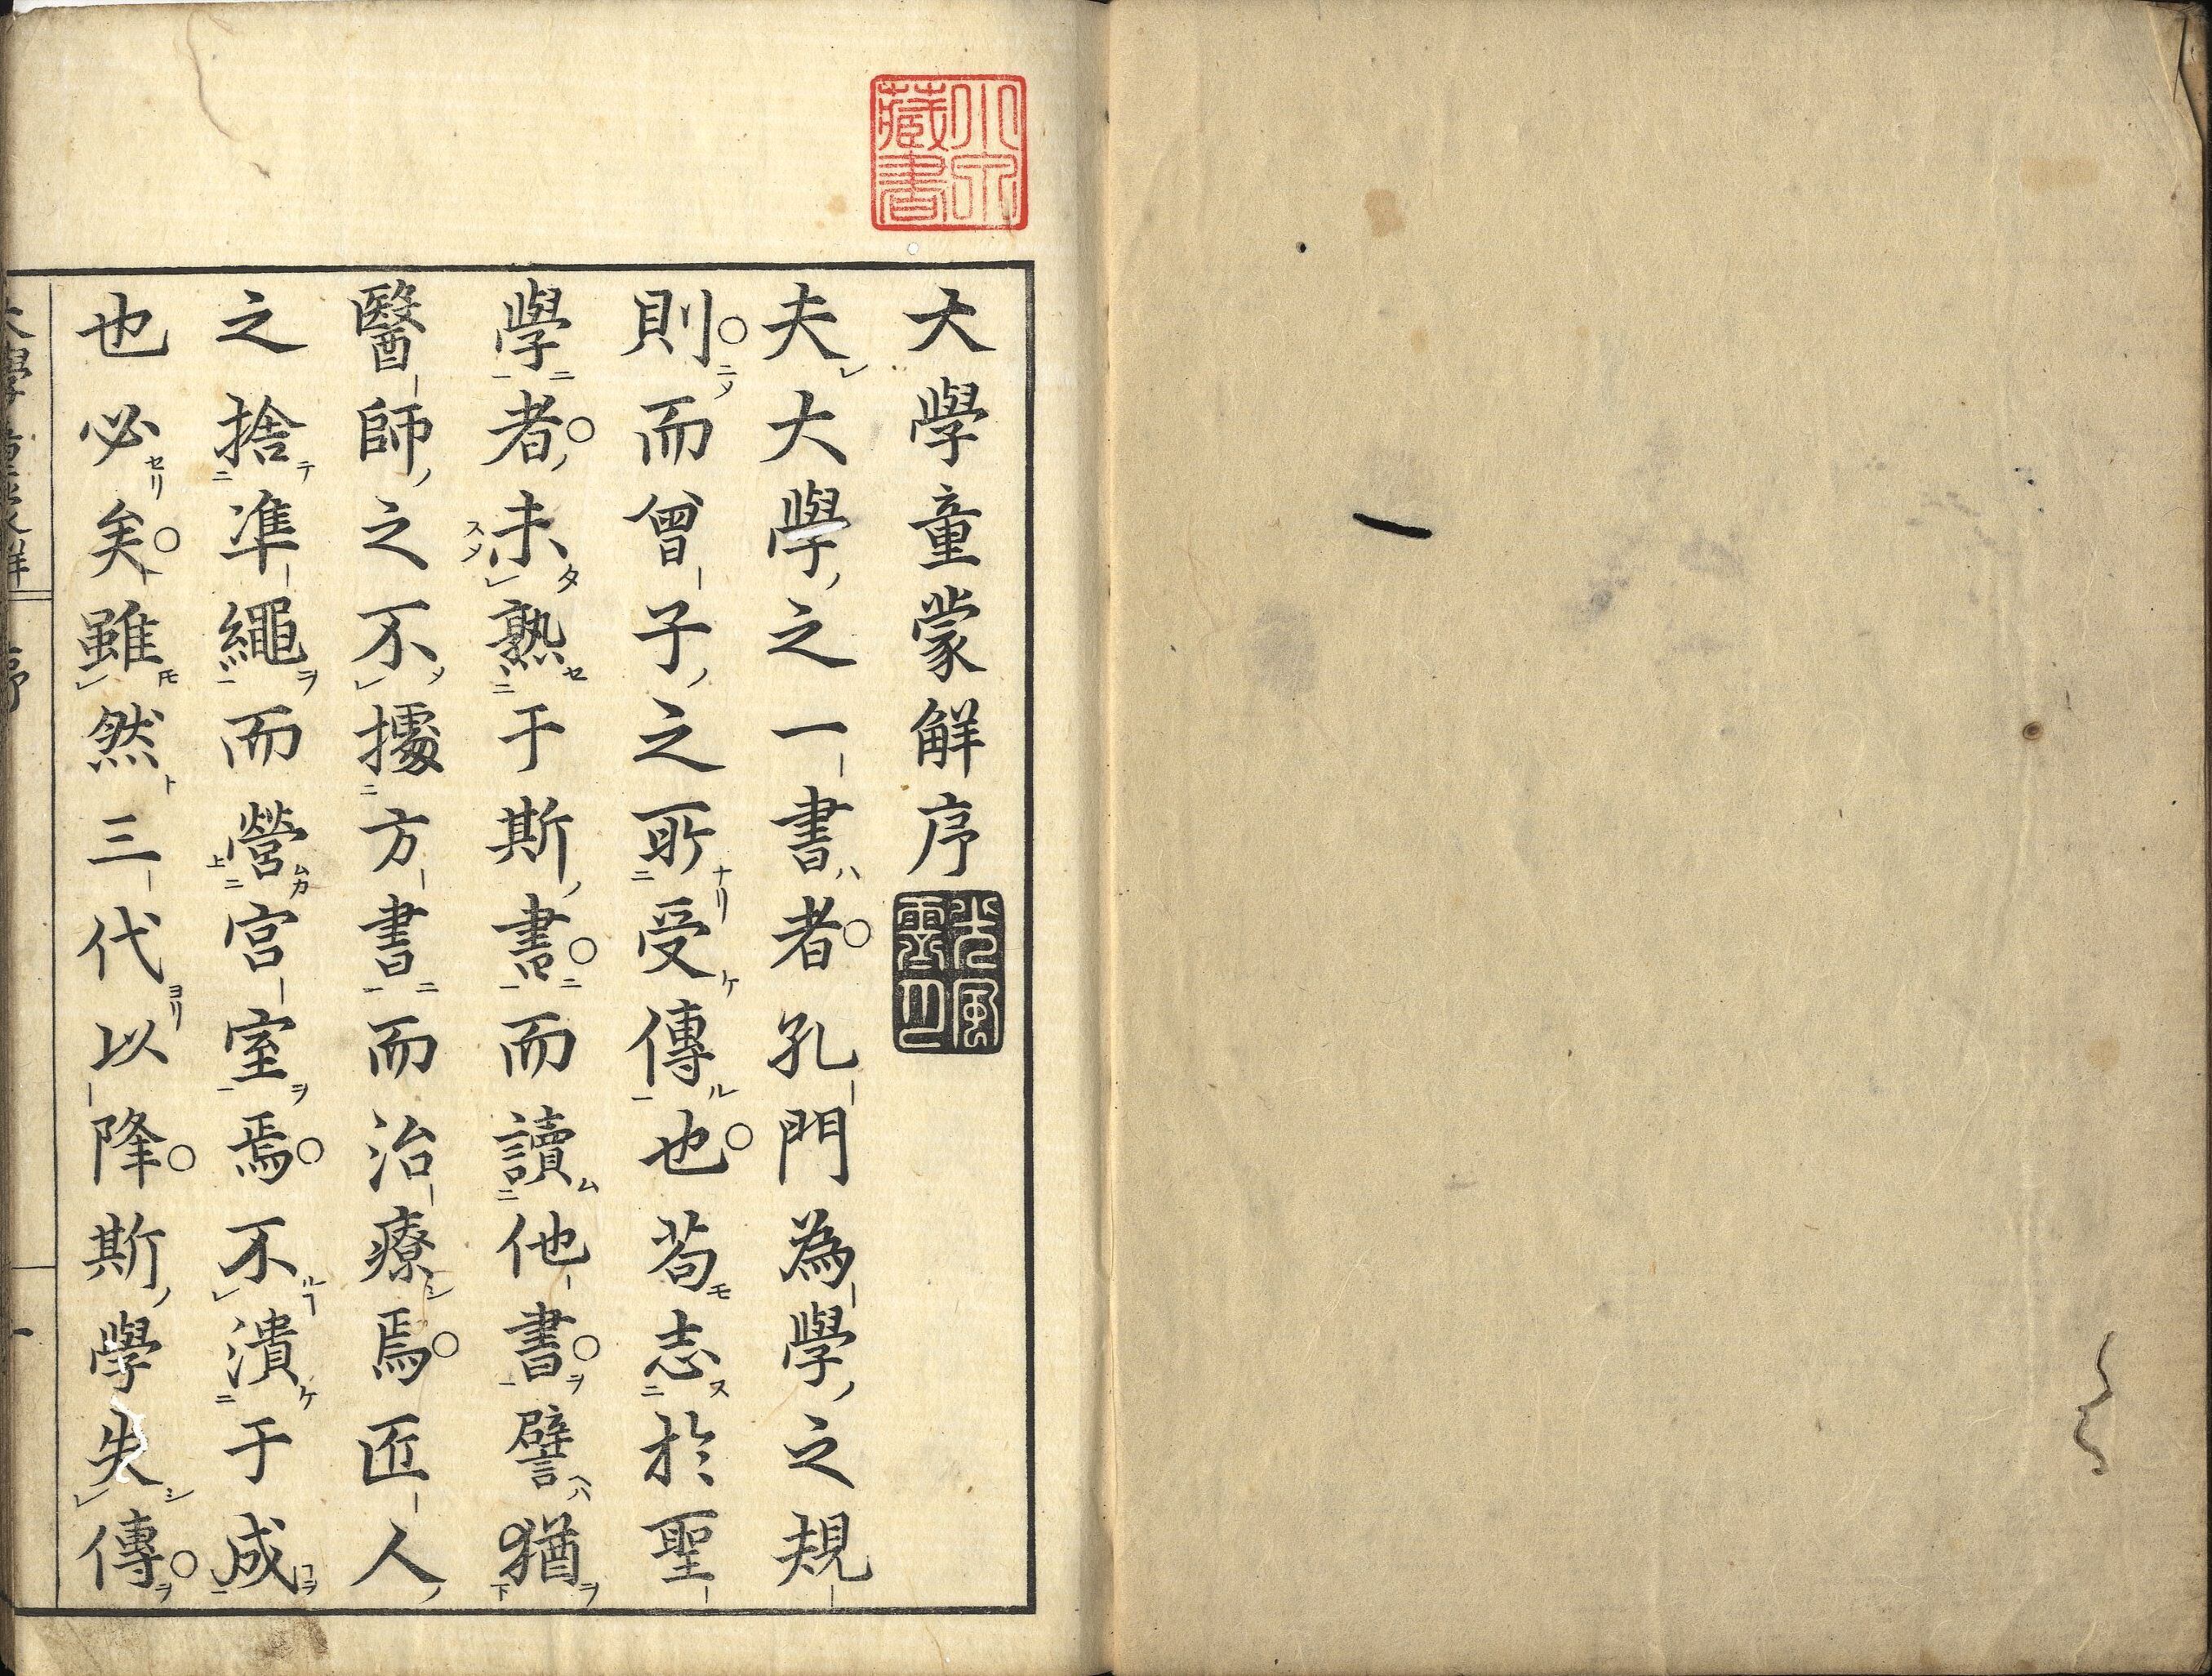 大學童蒙解序
夫大學之一書者孔門為學之規
則而曾子之所受傳也苟志於聖
學者未熟于斯書而讀他書譬猶
醫師之不據方書而治療焉匠人
之捨準繩而營宮室焉不潰于成
也必矣雖然三代以降斯學失傳
藏書